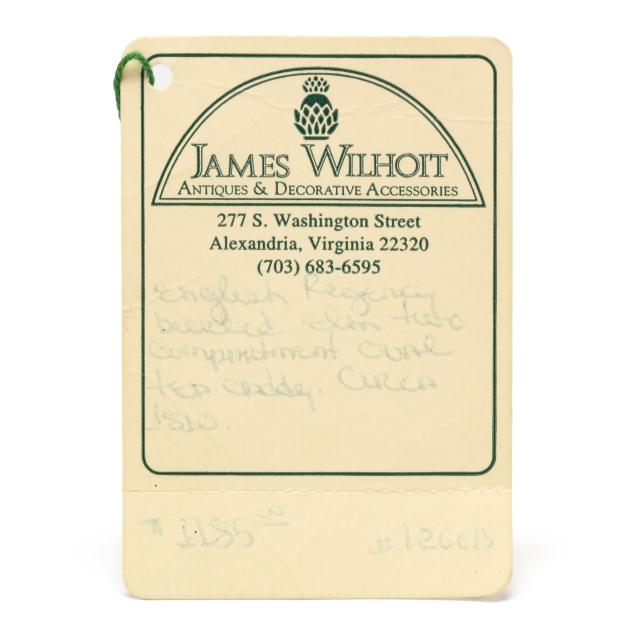 JAMES WILHOIT
ANTIQUES & DECORATIVE ACCESSORIES
277 S. Washington Street
Alexandria, Virginia 22320
(703) 683-6595
English Regency
burled elm two
compartment oval
tea caddy. Circa
1810.
$ 1185.00 #1260B